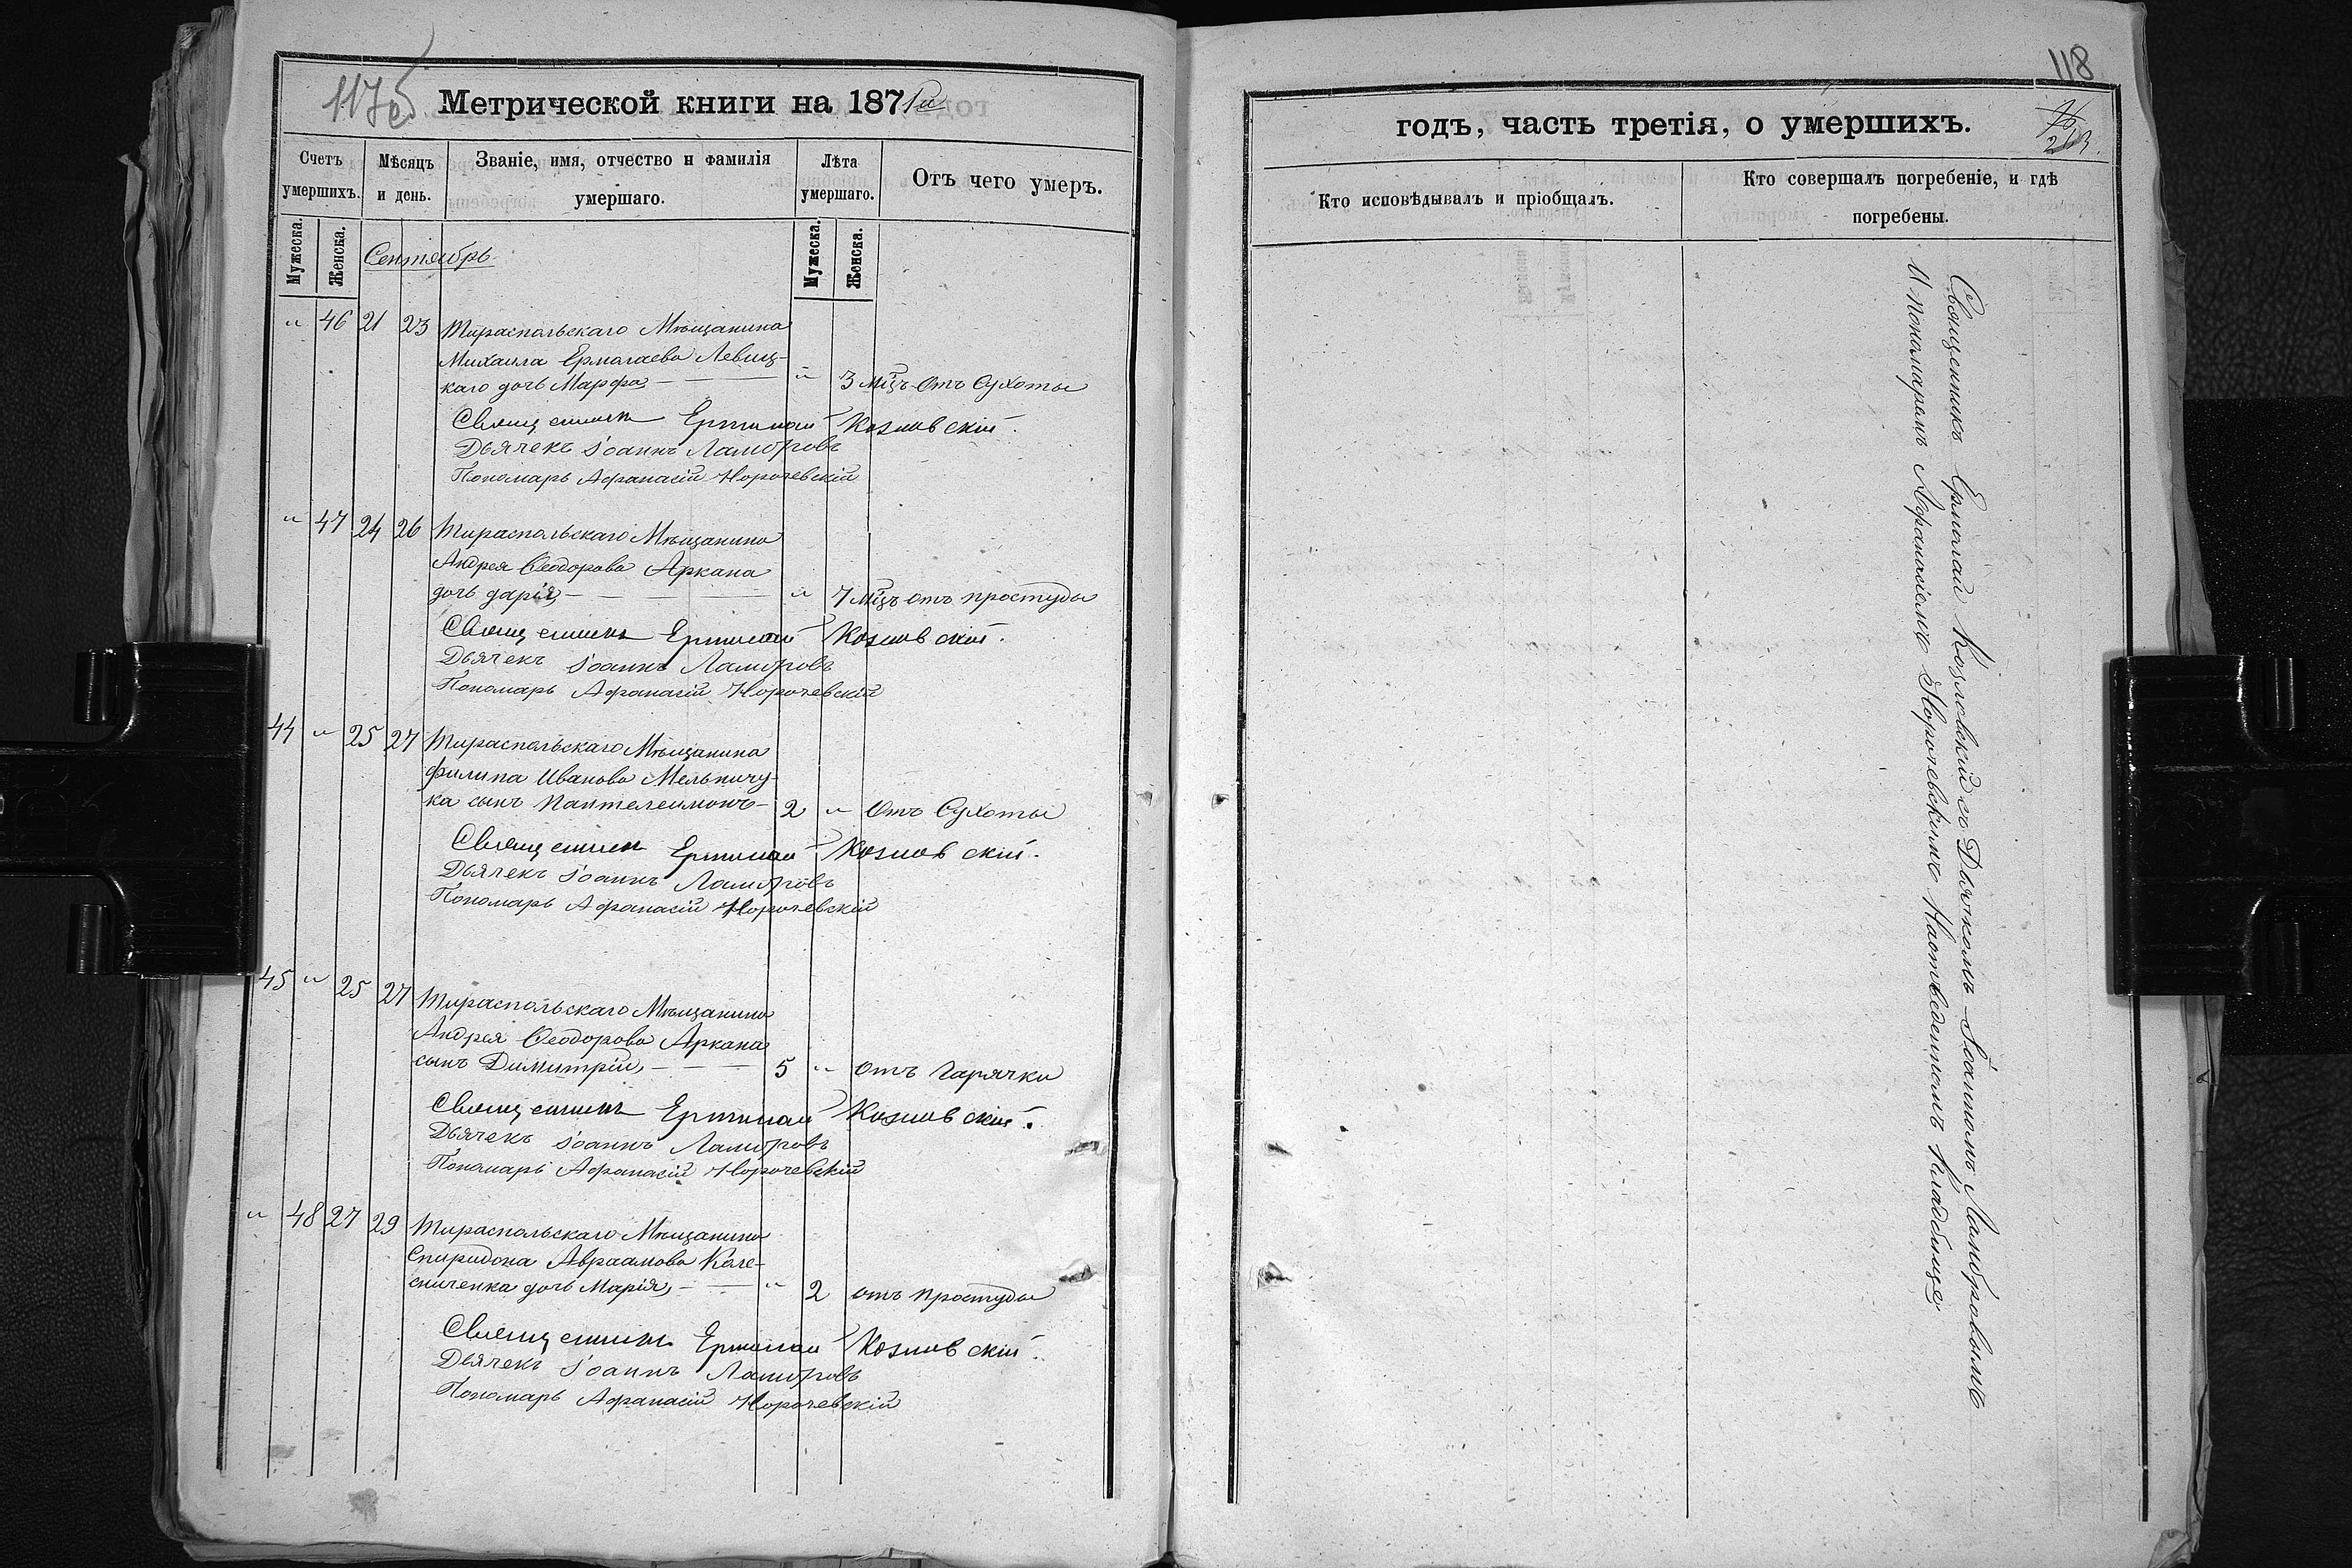 117об
Метрической книги на 1871й
Счетъ умершихъ.
Мѣсяцъ и день.
Званіе, имя, отчество и фамилія умершаго.
Лѣта умершаго.
Отъ чего умеръ.
Мужеска.
Женска.
Мужеска.
Женска.
Сентябрь
" 46 21 23 Тираспольскаго Мѣщанина
Михаила Ермолаева Левиц-
каго дочь Марфа — " 3 мцъ Отъ Сухоты
Священникъ Ермолай Козловскій.
Дьячекъ Іоаннъ Ламбровъ
Пономарь Афанасій Норочевскій
" 47 24 26 Тираспольскаго Мѣщанина
Андрея Ѳеодорова Аркана
дочь дарія, — " 7 мцъ отъ простуды
Священникъ Ермолай Козловскій.
Дьячекъ Іоаннъ Ламбровъ
Пономарь Афанасій Норочевскій
44 " 25 27 Тираспольскаго Мѣщанина
Филипа Иванова Мельничу-
ка сынъ Пантелеимонъ — 2 " Отъ Сухоты
Священникъ Ермолай Козловскій.
Дьячекъ Іоаннъ Ламбровъ
Пономарь Афанасій Норочевскій
45 " 25 27 Тираспольскаго Мѣщанина
Андрея Ѳеодорова Аркана
сынъ Димитрій, — 5 " отъ Гарячки
Священникъ Ермолай Козловскій.
Дьячекъ Іоаннъ Ламбровъ
Пономарь Афанасій Норочевскій
" 48 27 29 Тираспольскаго Мѣщанина
Спиридона Авраамова Коле-
сниченка дочь Марія, — " 2 отъ простуды
Священникъ Ермолай Козловскій.
Дьячекъ Іоаннъ Ламбровъ
Пономарь Афанасій Норочевскій
118
годъ, часть третія, о умершихъ.
Кто исповѣдывалъ и пріобщалъ.
Кто совершалъ погребеніе, и гдѣ
погребены.
Священникъ Ермолай Козловскій съ Дьячкомъ Іоанномъ Ламбровымъ
И пономаремъ Афанасіемъ Норочевскимъ На отведенномъ кладбище,